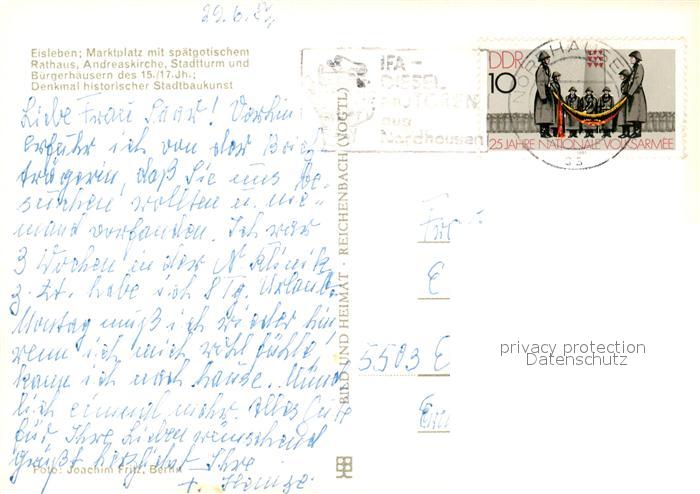 29.6.
Eisleben; Marktplatz mit spätgotischem
Rathaus, Andreaskirche, Stadtturm und
Bürgerhäusern des 15./17. Jh.;
Denkmal historischer Stadtbaukunst
Liebe Frau Saar! Vorhin
erfuhr ich von der Brief-
trägerin, daß Sie uns be-
suchen wollten u. nie-
mand vorfanden. Ich war
3 Wochen in der N Klinik
z. Zt. habe ich 8 Tg. Urlaub.
Montag muß ich wieder hin,
wenn ich mich wohl fühle,
kann ich nach Hause. Münd-
lich einmal mehr. Alles Gute
für Ihre Lieben wünschend
grüßt herzlichst Ihre
Foto: Joachim Fritz, Berlin
BILD UND HEIMAT · REICHENBACH (VOGTL)
IFA-
DIESEL
MOTOREN
aus
Nordhausen
NORDHAUSEN
DDR
10
25 JAHRE NATIONALE VOLKSARMEE
E
5503 E
privacy protection
Datenschutz